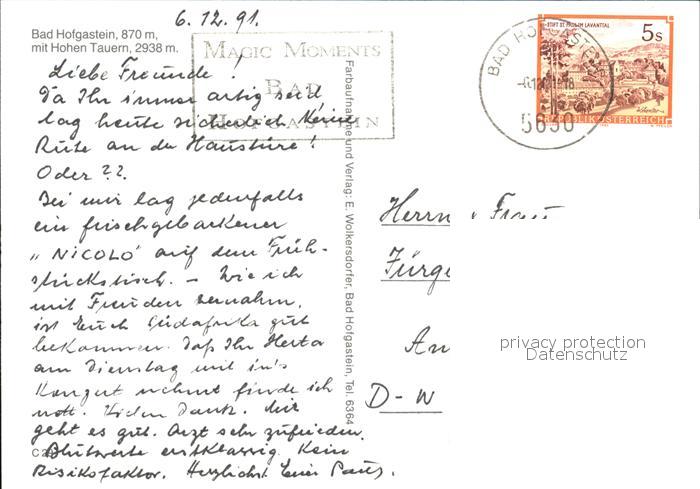 6.12.91.
Bad Hofgastein, 870 m,
mit Hohen Tauern, 2938 m.
MAGIC MOMENTS
BAD
HOFGASTEIN
Liebe Freunde!
Da Ihr immer artig seid
lag heute sicherlich keine
Rute an der Haustüre!
Oder ??
Bei mir lag jedenfalls
ein frischgebackener
„NICOLO" auf dem Früh-
stückstisch. – Wie ich
mit Freuden vernahm,
ist Euch Südafrika gut
bekommen. Daß Ihr Herta
am Dienstag mit in's
Konzert nehmt finde ich
nett. Vielen Dank. Mir
geht es gut. Arzt sehr zufrieden.
Blutwerte erstklassig. Kein
Risikofaktor. Herzlichst Euer
Farbaufnahme und Verlag: E. Wolkersdorfer, Bad Hofgastein, Tel. 6364
STIFT ST. PAUL IM LAVANTTAL
5 S
REPUBLIK ÖSTERREICH
BAD HOFGASTEIN
5630
Herrn Frau
Jürge
An
D-W
privacy protection
Datenschutz